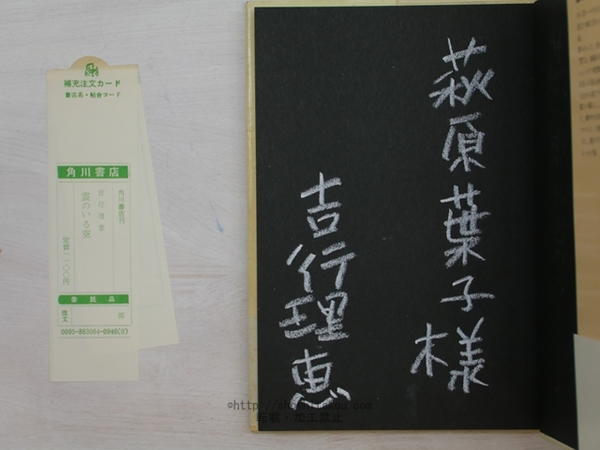 補充注文カード
書店名・帖合コード
角川書店
角川書店刊
吉行理恵
雲のいる空
定価一一〇〇円
委託品
注文
部
0095-883064-0946(0)
萩原葉子様
吉行理恵
転載・加工禁止